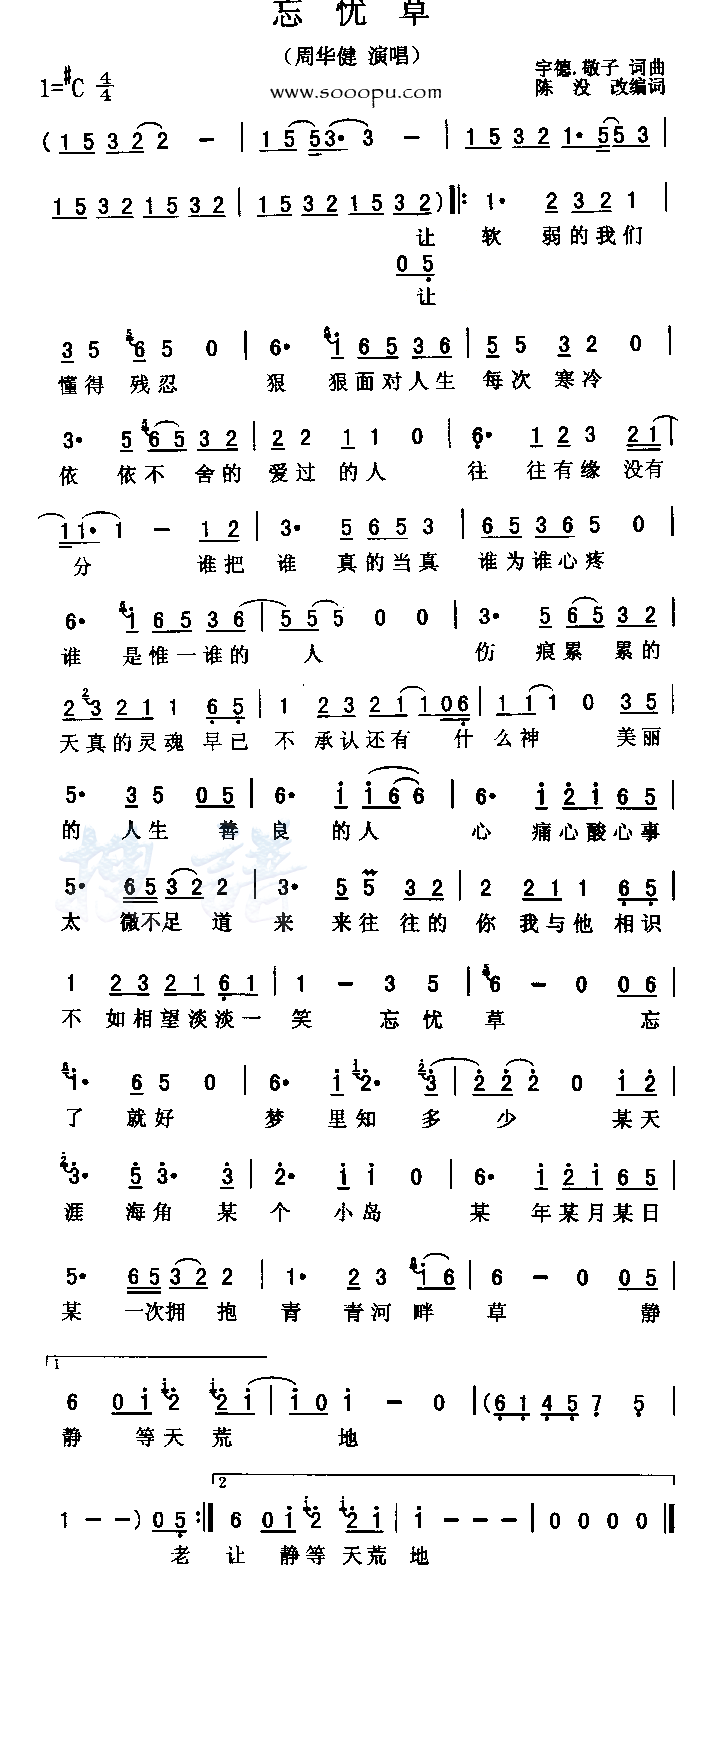 忘忧草
（周华健 演唱）
宇德.敬子 词曲
1=#C 4/4
陈 没 改编词
www.sooopu.com
(1 5 3 2 2 － | 1 5 5 3• 3 － | 1 5 3 2 1• 5 5 3 |
1 5 3 2 1 5 3 2 | 1 5 3 2 1 5 3 2 ) ‖: 1• 2 3 2 1 |
让 软 弱的我们
0 5
让
3 5 6 5 0 | 6• 1 6 5 3 6 | 5 5 3 2 0 |
懂得 残忍 狠 狠面对人生 每次 寒冷
3• 5 6 5 3 2 | 2 2 1 1 0 | 6• 1 2 3 2 1 |
依 依不 舍的 爱过 的人 往 往有缘 没有
1 1• 1 － 1 2 | 3• 5 6 5 3 | 6 5 3 6 5 0 |
分 谁把 谁 真的当真 谁为谁心疼
6• 1 6 5 3 6 | 5 5 5 0 0 | 3• 5 6 5 3 2 |
谁 是惟一谁的 人 伤 痕累 累的
2 3 2 1 1 6 5 | 1 2 3 2 1 1 0 6 | 1 1 1 0 3 5 |
天真的灵魂 早已 不 承认还有 什么神 美丽
5• 3 5 0 5 | 6• 1 1 6 6 | 6• 1 2 1 6 5 |
的 人生 善 良 的人 心 痛心酸心事
5• 6 5 3 2 2 | 3• 5 5 3 2 | 2 2 1 1 6 5 |
太 微不足 道 来 来往 往的 你 我与他 相识
1 2 3 2 1 6 1 | 1 － 3 5 | 6 － 0 0 6 |
不 如相望淡淡一 笑 忘 忧 草 忘
1• 6 5 0 | 6• 1 2• 3 | 2 2 2 0 1 2 |
了 就好 梦 里知 多 少 某天
3• 5 3• 3 | 2• 1 1 0 | 6• 1 2 1 6 5 |
涯 海角 某 个 小岛 某 年某月某日
5• 6 5 3 2 2 | 1• 2 3 1 6 | 6 － 0 0 5 |
某 一次拥 抱 青 青河 畔 草 静
1
6 0 1 2 2 1 | 1 0 1 － 0 | (6 1 4 5 7 5 |
静 等天 荒 地
2
1 － － ) 0 5 :‖ 6 0 1 2 2 1 | 1 － － － | 0 0 0 0 ‖
老 让 静等 天荒 地